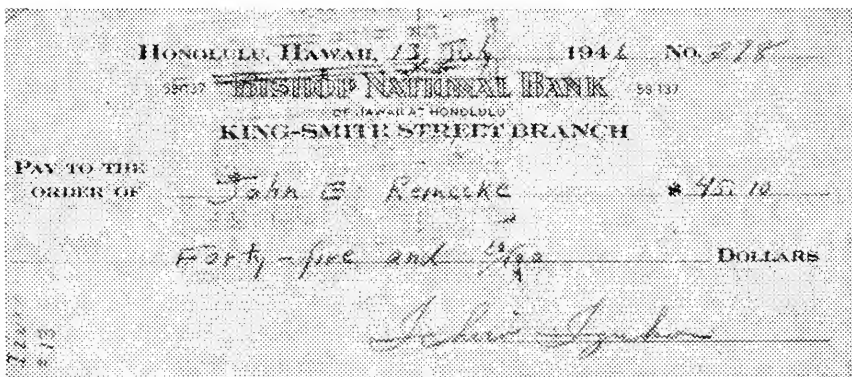 HONOLULU, HAWAII, 13 July 1946 No. 218
59-137 BISHOP NATIONAL BANK 59-137
OF HAWAII AT HONOLULU
KING-SMITH STREET BRANCH
PAY TO THE
ORDER OF John E Reinecke $ 45.10
Forty-five and 10/100 DOLLARS